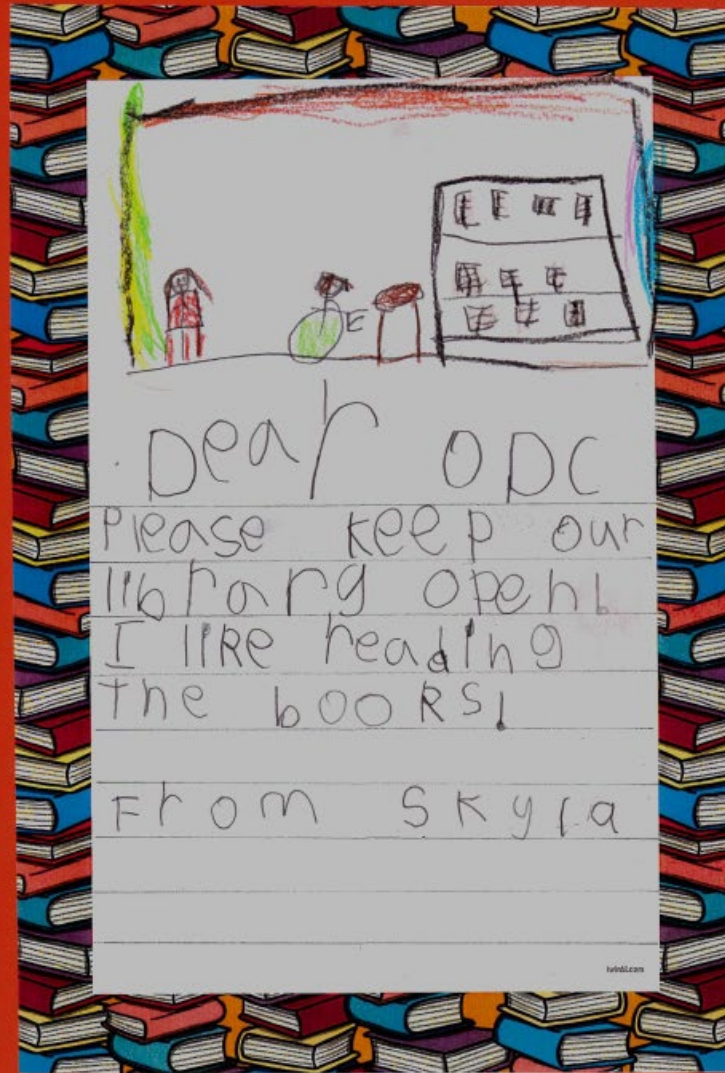 Dear ODC
Please keep our
library open!
I like reading
the books!
From Skyla
twinkl.com